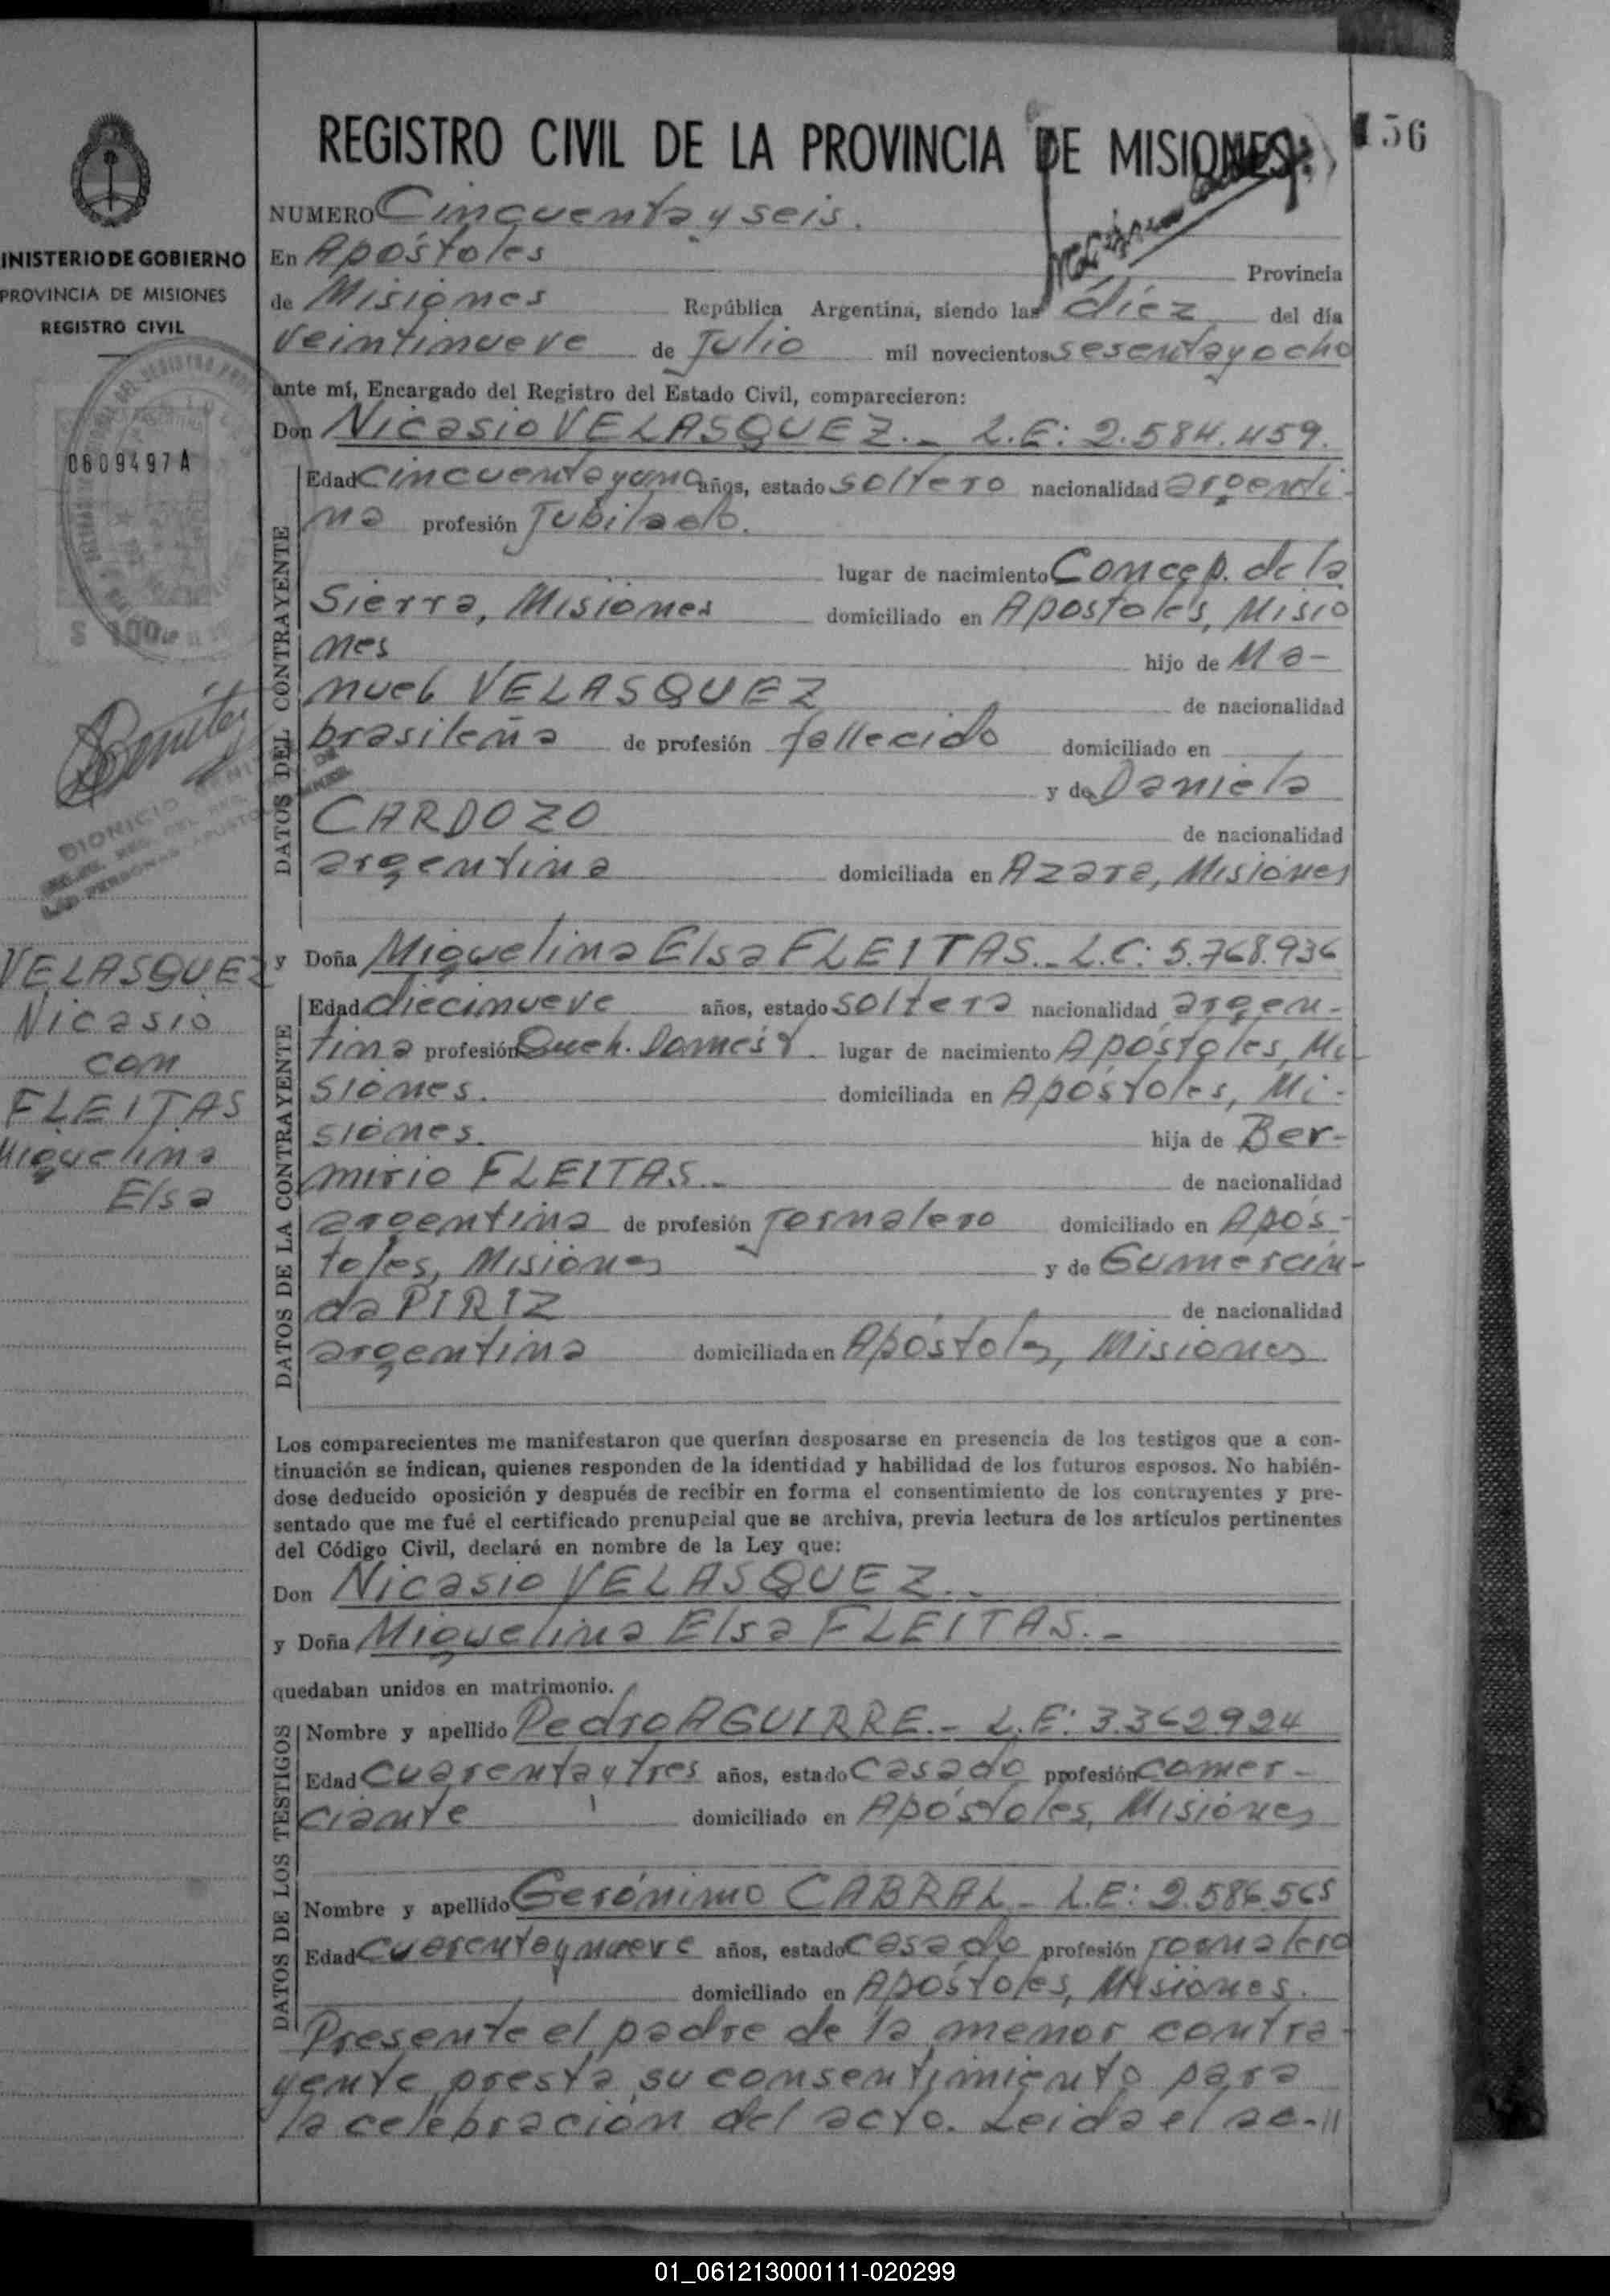 REGISTRO CIVIL DE LA PROVINCIA DE MISIONES:
156
MINISTERIO DE GOBIERNO
PROVINCIA DE MISIONES
REGISTRO CIVIL
0609497A
$ 100
DIONICIO
VELASQUEZ
Nicasio
con
FLEITAS
Miguelina
Elsa
NUMERO Cincuenta y seis.
En Apóstoles Provincia
de Misiones República Argentina, siendo las diez del día
veintinueve de Julio mil novecientos sesenta y ocho
ante mí, Encargado del Registro del Estado Civil, comparecieron:
Don Nicasio VELASQUEZ.- L.E: 2.584.459.
DATOS DEL CONTRAYENTE
Edad cincuenta y uno años, estado soltero nacionalidad argenti-
na profesión Jubilado.
lugar de nacimiento Concep. de la
Sierra, Misiones domiciliado en Apóstoles, Misio
nes hijo de Ma-
nuel VELASQUEZ de nacionalidad
brasileña de profesión fallecido domiciliado en
y de Daniela
CARDOZO de nacionalidad
argentina domiciliada en Azara, Misiones
y Doña Miguelina Elsa FLEITAS.- L.C: 5.768.936
DATOS DE LA CONTRAYENTE
Edad diecinueve años, estado soltera nacionalidad argen-
tina profesión Queh. Domést. lugar de nacimiento Apóstoles, Mi-
siones. domiciliada en Apóstoles, Mi-
siones. hija de Ber-
mirio FLEITAS.- de nacionalidad
argentina de profesión jornalero domiciliado en Após-
toles, Misiones y de Gumercin-
da PIRIZ de nacionalidad
argentina domiciliada en Apóstoles, Misiones
Los comparecientes me manifestaron que querían desposarse en presencia de los testigos que a con-
tinuación se indican, quienes responden de la identidad y habilidad de los futuros esposos. No habién-
dose deducido oposición y después de recibir en forma el consentimiento de los contrayentes y pre-
sentado que me fué el certificado prenupcial que se archiva, previa lectura de los artículos pertinentes
del Código Civil, declaré en nombre de la Ley que:
Don Nicasio VELASQUEZ.-
y Doña Miguelina Elsa FLEITAS.-
quedaban unidos en matrimonio.
DATOS DE LOS TESTIGOS
Nombre y apellido Pedro AGUIRRE.- L.E: 3.362.924
Edad cuarenta y tres años, estado casado profesión comer-
ciante domiciliado en Apóstoles, Misiones
Nombre y apellido Gerónimo CABRAL - L.E: 2.586.565
Edad cuarenta y nueve años, estado casado profesión jornalero
domiciliado en Apóstoles, Misiones.
Presente el padre de la menor contra-
yente presta su consentimiento para
la celebración del acto. Leída el ac-//
01_061213000111-020299